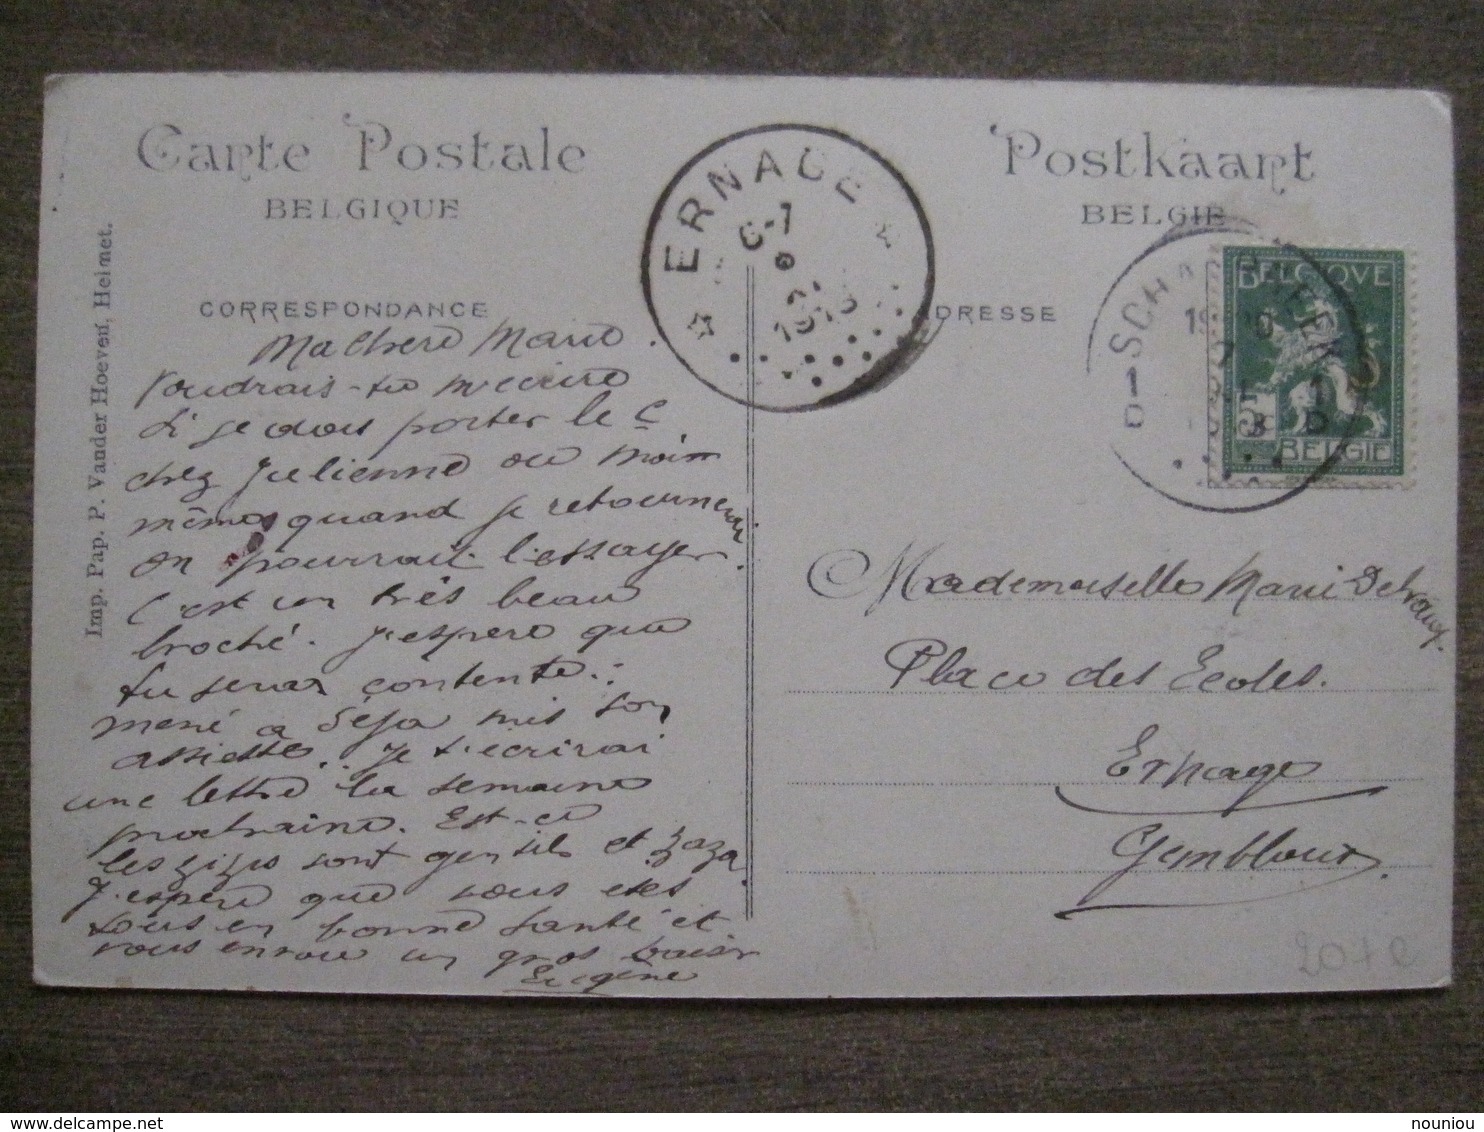 Carte Postale
BELGIQUE
Postkaart
BELGIE
CORRESPONDANCE
ADRESSE
Imp. Pap. P. Vander Hoeven, Helmet.
ERNAGE
1913
SCHAERBEEK
BELGIQUE
5
BELGIE
Ma Chère Marie.
Voudrais-tu m'écrire
Si je dois porter le C
chez Julienne ou moi
même quand je retournerai
on pourrait l'essayer.
C'est un très beau
broché. J'espère que
tu seras contente.
mené a déja mis son
assiette.. Je t'écrirai
une lettre la semaine
prochaine. Est-ce
les zizis sont gentils et zaza.
J'espère que vous etes
tous en bonne santé et
vous envoie un gros baiser
Eugène
Mademoiselle Marie
Place des Ecoles.
Ernage
Gembloux.
207 e
nouniou